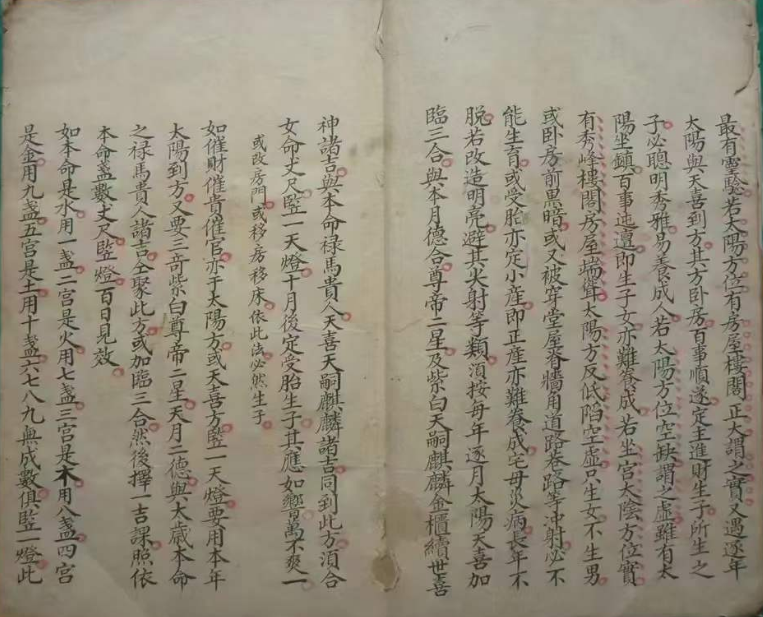 最有靈驗若太陽方位有房屋樓閣正大謂之實又遇逐年
太陽與天喜到方其方卧房百事順遂定主進財生子所生之
子必聰明秀雅易養成人若太陽方位空缺謂之虛雖有太
陽坐鎮百事迍邅即生子女亦難養成若坐宫太陰方位實
有秀峰樓閣房屋端聳太陽方反低陷空虛只生女不生男
或卧房前黑暗或又被穿堂屋脊牆角道路巷路等冲射必不
能生育或受胎亦定小産即正産亦難養成宅母災病長年不
脱若改造明亮避其尖射等類須按每年逐月太陽天喜加
臨三合與本月德合尊帝二星及紫白天嗣麒麟金櫃續世喜
神諸吉與本命禄馬貴人天喜天嗣麒麟諸吉同到此方須合
女命丈尺竪一天燈十月後定受胎生子其應如響萬不爽一
或改房門或移房移床依此法必然生子
如催財催貴催官亦于太陽方或天喜方竪一天燈要用本年
太陽到方又要三奇紫白尊帝二星天月二德與大歳本命
之禄馬貴人諸吉仝聚此方或加臨三合然後擇一吉課照依
本命盞數丈尺竪燈百日見效
如本命是水用一盞二宫是火用七盞三宫是木用八盞四宫
是金用九盞五宫是土用十盞六七八九無成數俱竪一燈此